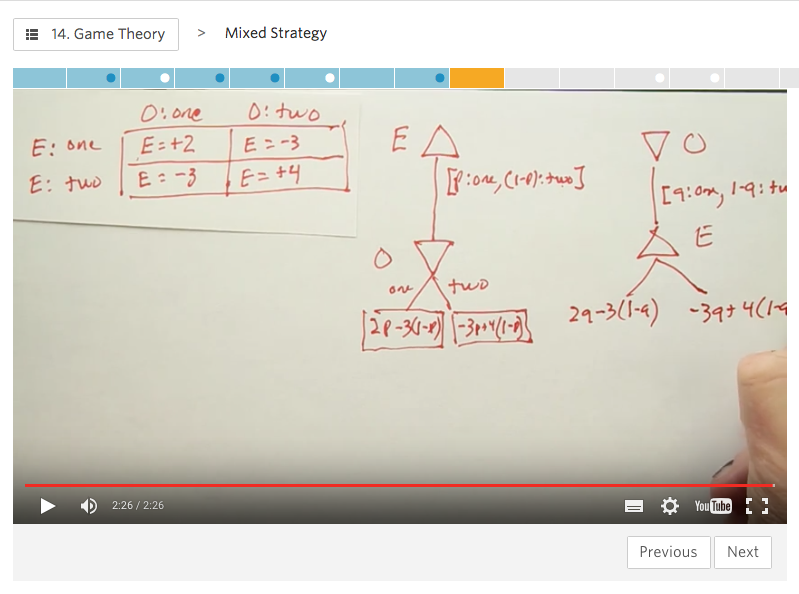 14. Game Theory > Mixed Strategy
O: one O: two
E: one E=+2 E=-3
E: two E=-3 E=+4
E
[p:one, (1-p):two]
O
one two
2p-3(1-p) -3p+4(1-p)
O
[q:one, 1-q:tw
E
2q-3(1-q) -3q+4(1-q
2:26 / 2:26
YouTube
Previous Next